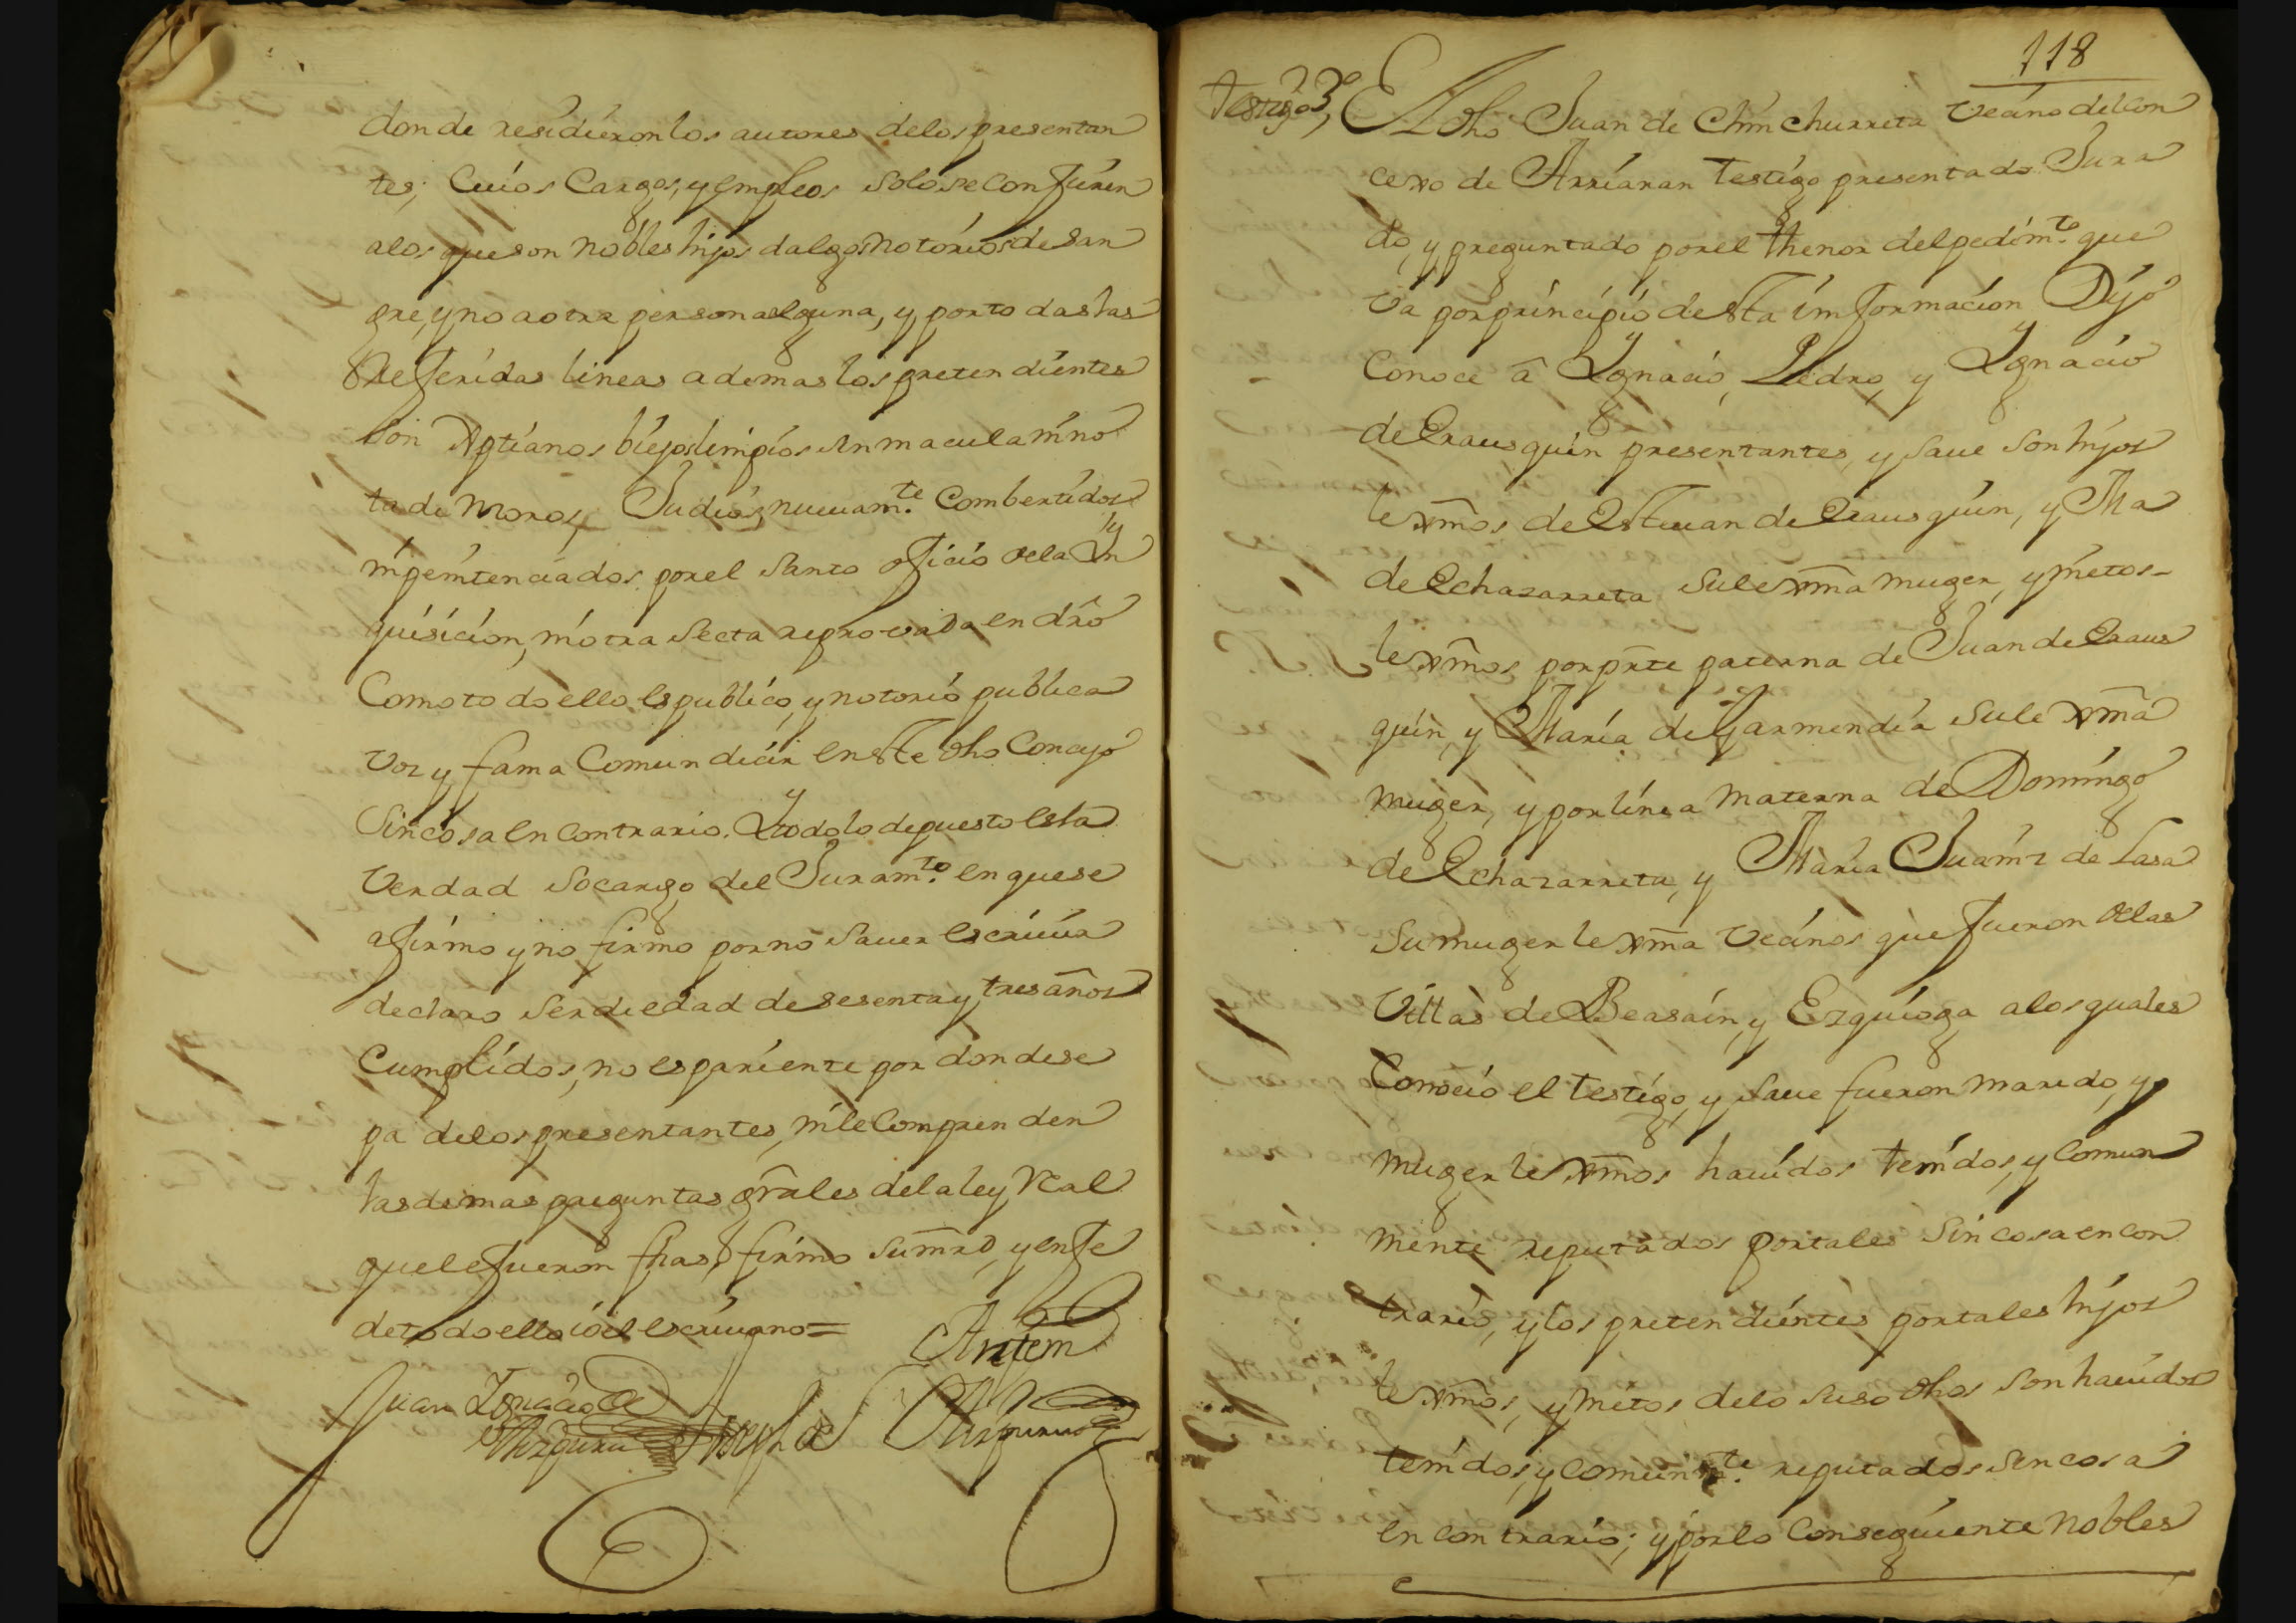 donde residieron los autores delos presentan
tes; Cuios Cargos, y empleos solo se confieren
alos que son nobles hijos dalgo notorios de san
gre, y no a otra persona alguna, y por todas las
Referidas lineas ademas los pretendientes
son Xptianos biejos limpios sin macula ni no
ta de moros, Judios, nueuam.te Combertidos
ni penitenciados por el Santo oficio dela Yn
quisicion, ni otra secta reprovada en dr̃o
Como todo ello es publico, y notorio publica
voz y fama Comun decir en este dho Concejo
sin cosa en contrario. Y todo lo depuesto es la
Verdad socargo del Juram.to en que se
afirmo y no firmo por no sauer escriuir
declaro ser de edad de sesenta y tres años
Cumplidos, no es pariente por donde se
pa delos presentantes, ni le Comprenden
las demas preguntas gr̃ales dela ley Real
que le fueron fhas, firmo su mrd, y en fe
de todo ello io el escriuano=
Antemi
Juan Ignacio de
118
Testigo 3º, El dho Juan de Chinchurreta Vecino del con
cexo de Arriaran testigo presentado Jura
do, y preguntado por el thenor del pedim.to que
va por principio desta imformacion Dijo
Conoce â Ygnacio, Pedro, y Ygnacio
de Erausquin presentantes, y saue son hijos
lexmos de Esteuan de Erausquin, y Mª
de Echazarreta su lexma muger, y nietos
lexmos por prte paterna de Juan de Eraus
quin, y Maria de Garmendia su lexma
muger, y por linea materna de Domingo
de Echazarreta, y Maria Juaniz de Lasa
su muger lexma Vecinos que fueron delas
Villas de Beasain, y Ezquioga alos quales
Conocio el testigo, y saue fueron marido, y
muger lexmos hauidos tenidos, y Comun
mente reputados por tales sin cosa en con
trario, y los pretendientes por tales hijos
lexmos, y nietos delo suso dhos son hauidos
tenidos, y comunm.te reputados sin cosa
en contrario; y por lo Consequiente nobles